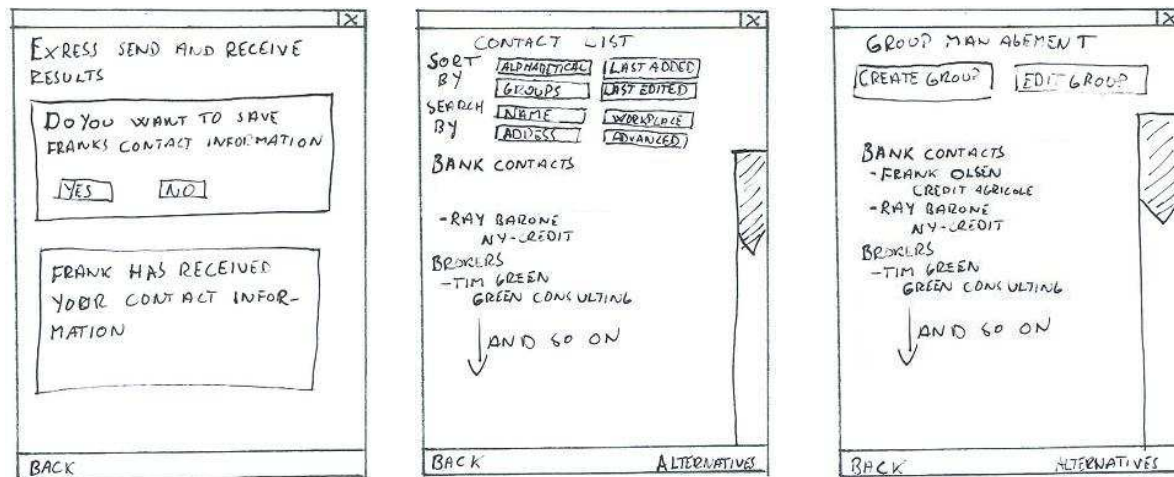 X
EXRESS SEND AND RECEIVE
RESULTS
DO YOU WANT TO SAVE
FRANKS CONTACT INFORMATION
YES NO
FRANK HAS RECEIVED
YOUR CONTACT INFOR-
MATION
BACK
X
CONTACT LIST
SORT BY
ALPHABETICAL LAST ADDED
GROUPS LAST EDITED
SEARCH BY
NAME WORKPLACE
ADDESS ADVANCED
BANK CONTACTS
-RAY BARONE
NY-CREDIT
BROKERS
-TIM GREEN
GREEN CONSULTING
AND SO ON
BACK ALTERNATIVES
X
GROUP MANAGEMENT
CREATE GROUP EDIT GROUP
BANK CONTACTS
-FRANK OLSEN
CREDIT AGRICOLE
-RAY BARONE
NY-CREDIT
BROKERS
-TIM GREEN
GREEN CONSULTING
AND SO ON
BACK ALTERNATIVES